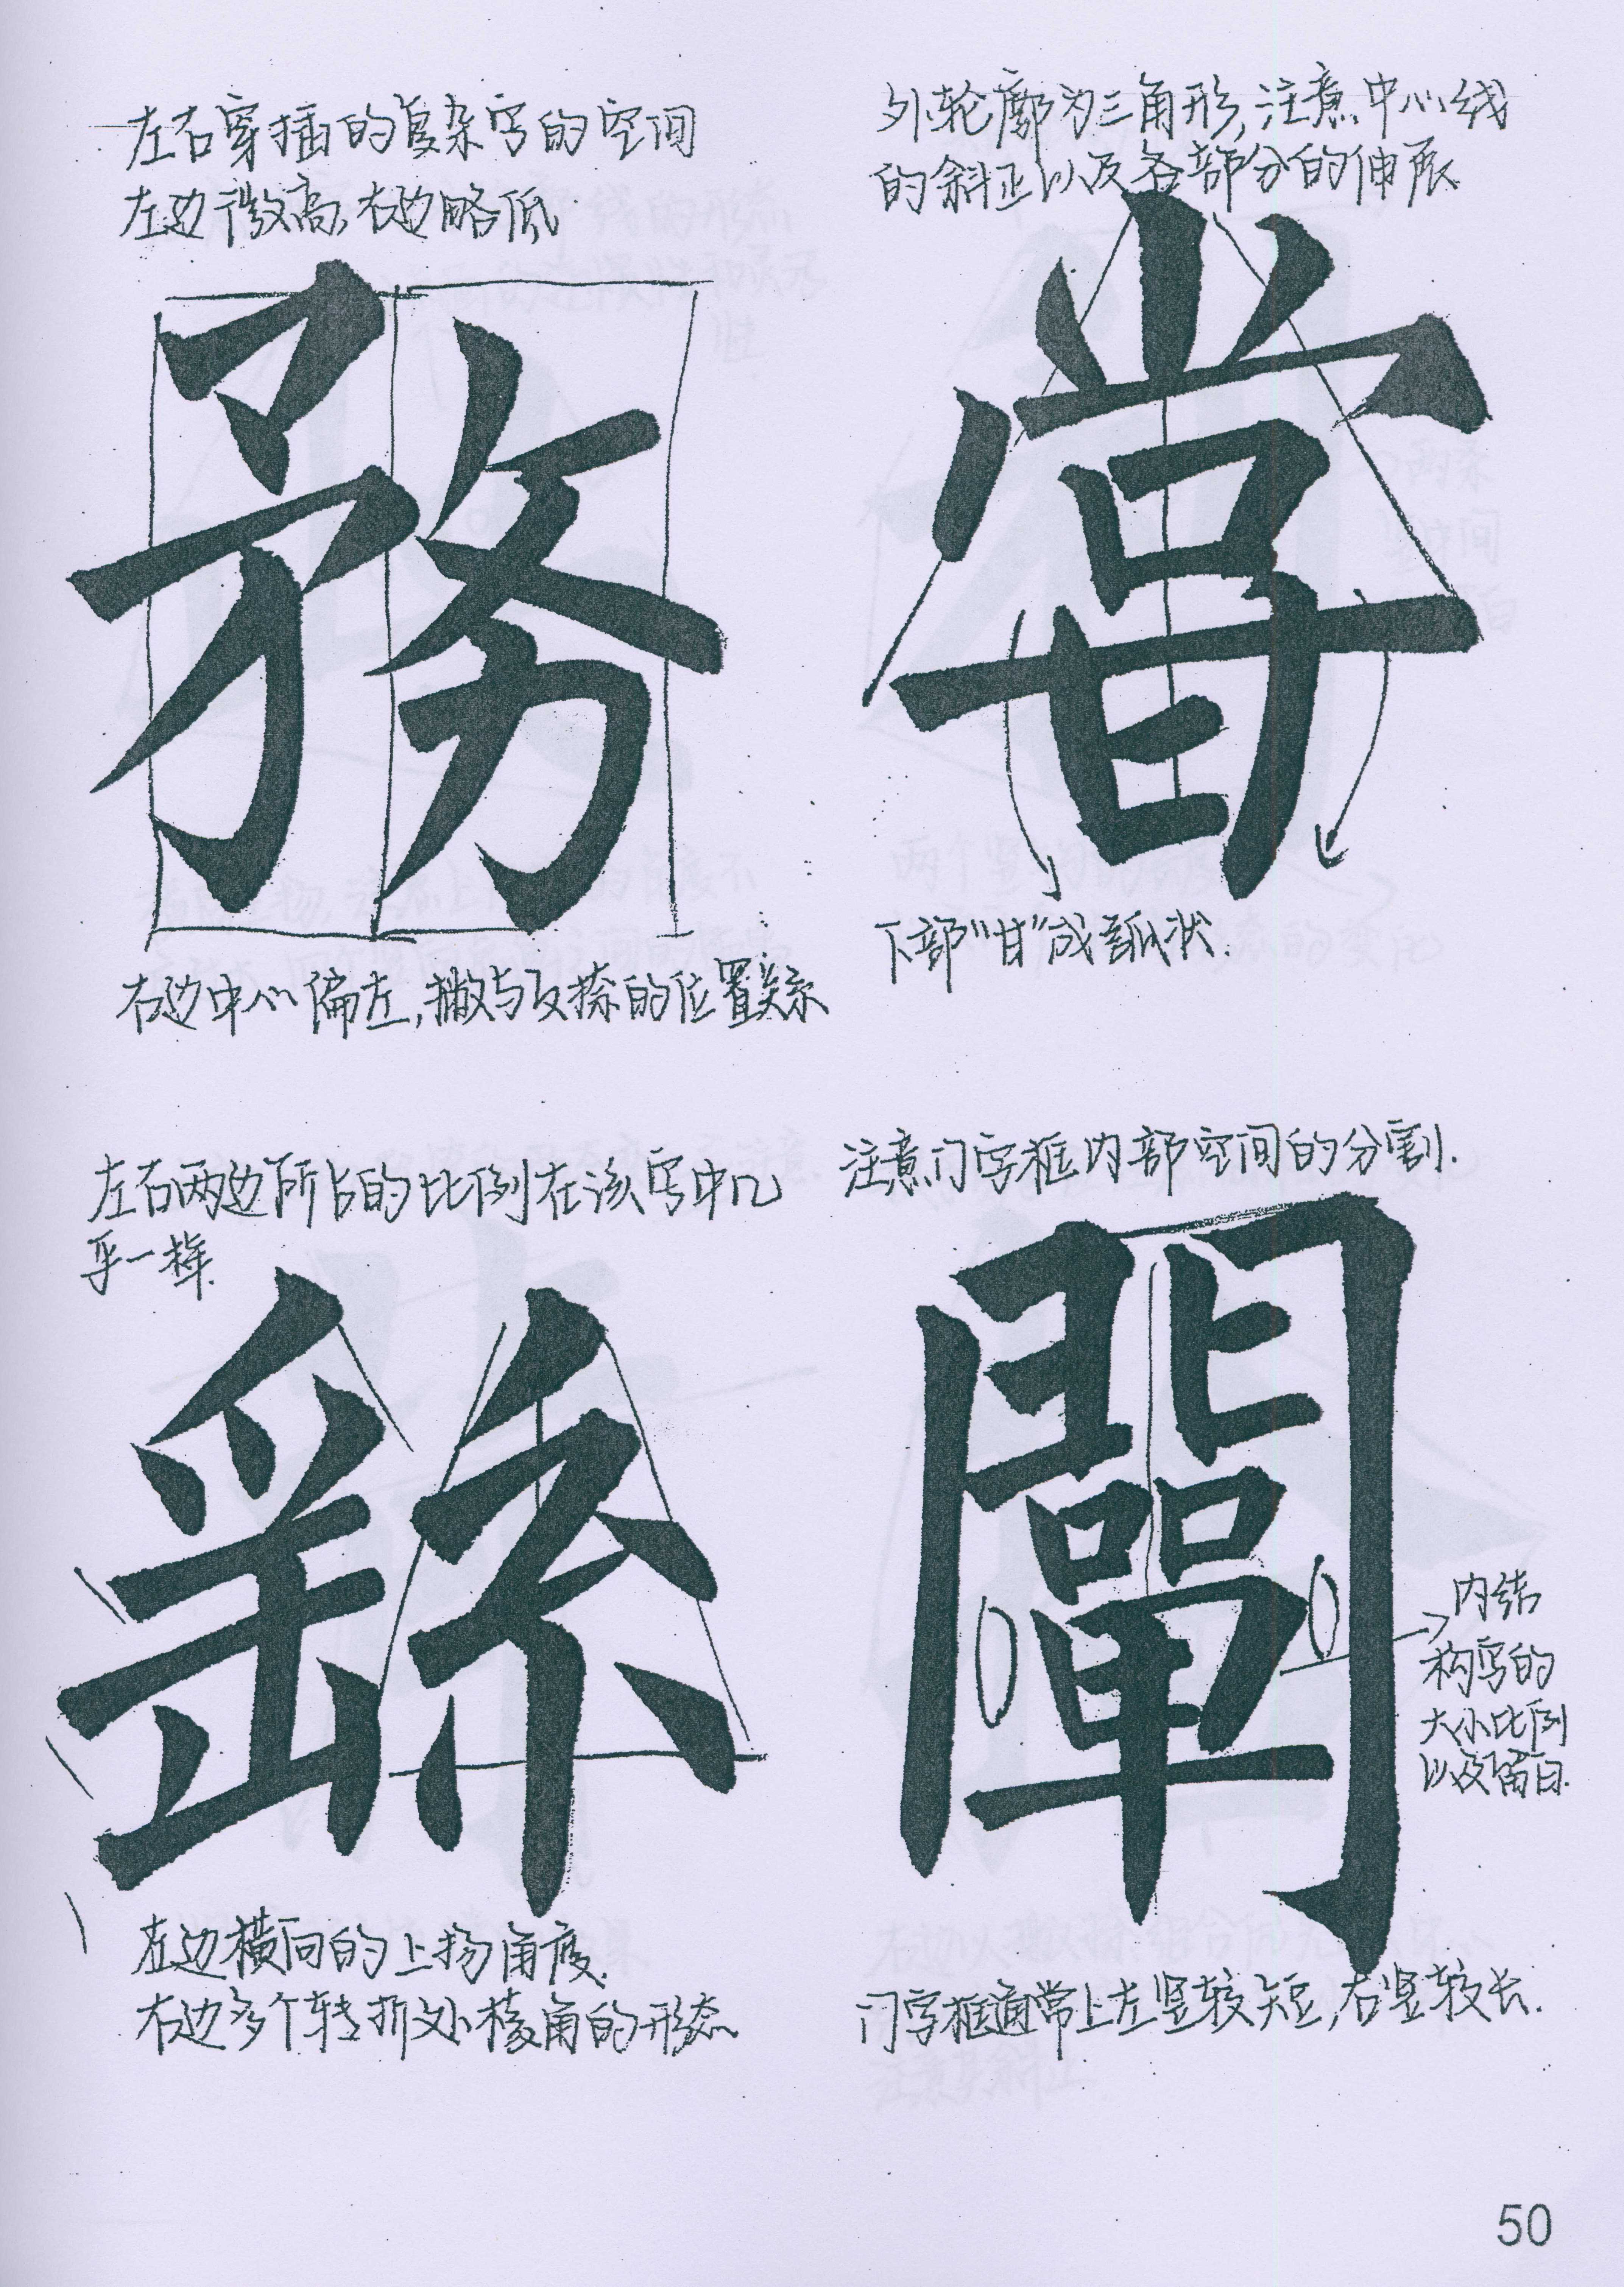 左右穿插的复杂字的空间
左边微高,右边略低
務
右边中心偏左,撇与反捺的位置关系
外轮廓为三角形,注意中心线
的斜正以及各部分的伸展
甞
下部“甘”成弧状.
左右两边所占的比例在该字中几
乎一样.
䌛
左边横向的上扬角度.
右边多个转折处棱角的形态
注意门字框内部空间的分割.
闡
内结
构字的
大小比例
以及留白.
门字框通常上左竖较短,右竖较长.
50